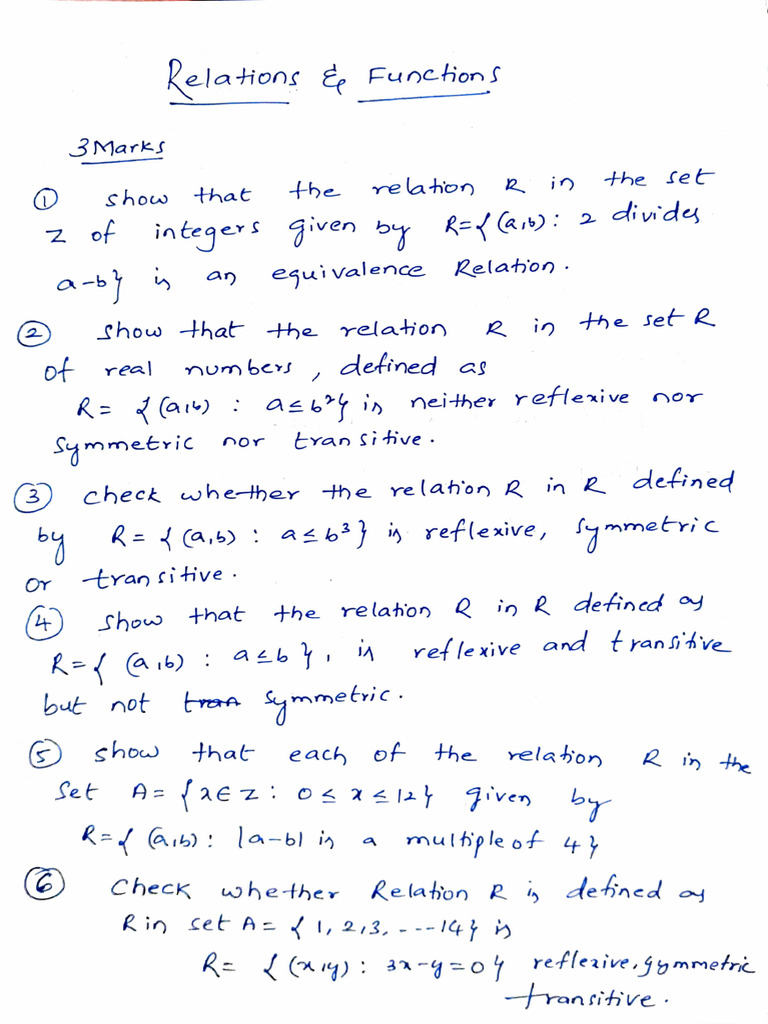 Relations & Functions
3 Marks
① show that the relation R in the set
Z of integers given by R={(a,b): 2 divides
a-b} is an equivalence Relation.
② show that the relation R in the set R
of real numbers, defined as
R= {(a,b) : a≤b²} is neither reflexive nor
symmetric nor transitive.
③ check whether the relation R in R defined
by R= {(a,b) : a≤b³} is reflexive, symmetric
or transitive.
④ show that the relation R in R defined as
R={ (a,b) : a≤b}, is reflexive and transitive
but not ~~tran~~ symmetric.
⑤ show that each of the relation R in the
set A= {x∈Z: 0≤x≤12} given by
R={ (a,b): |a-b| is a multiple of 4}
⑥ Check whether Relation R is defined as
R in set A= {1,2,3,----14} is
R= {(x,y): 3x-y=0} reflexive, symmetric
transitive.